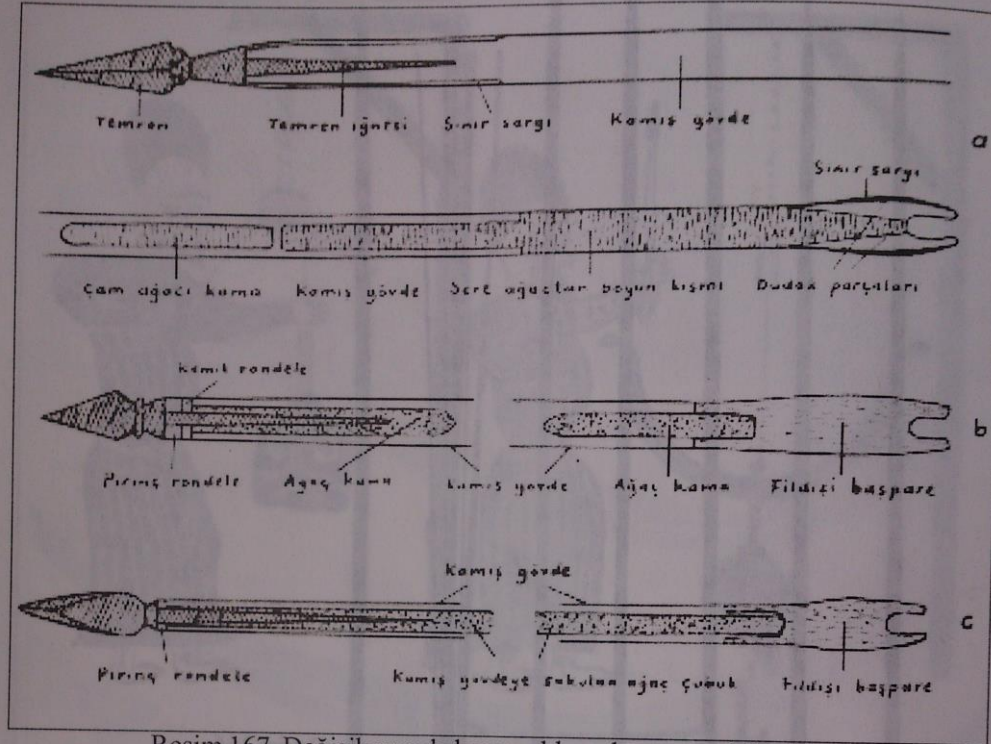 Temren Temren iğnesi Sinir sargı Kamış gövde
a
Sinir sargı
Çam ağacı kama Kamış gövde Sert ağaçtan boyun kısmı Dudak parçaları
Kamış rondele
b
Pirinç rondele Ağaç kama Kamış gövde Ağaç kama Fildişi başpare
Kamış gövde
c
Pirinç rondele Kamış gövdeye sokulan ağaç çubuk Fildişi başpare
Resim 167